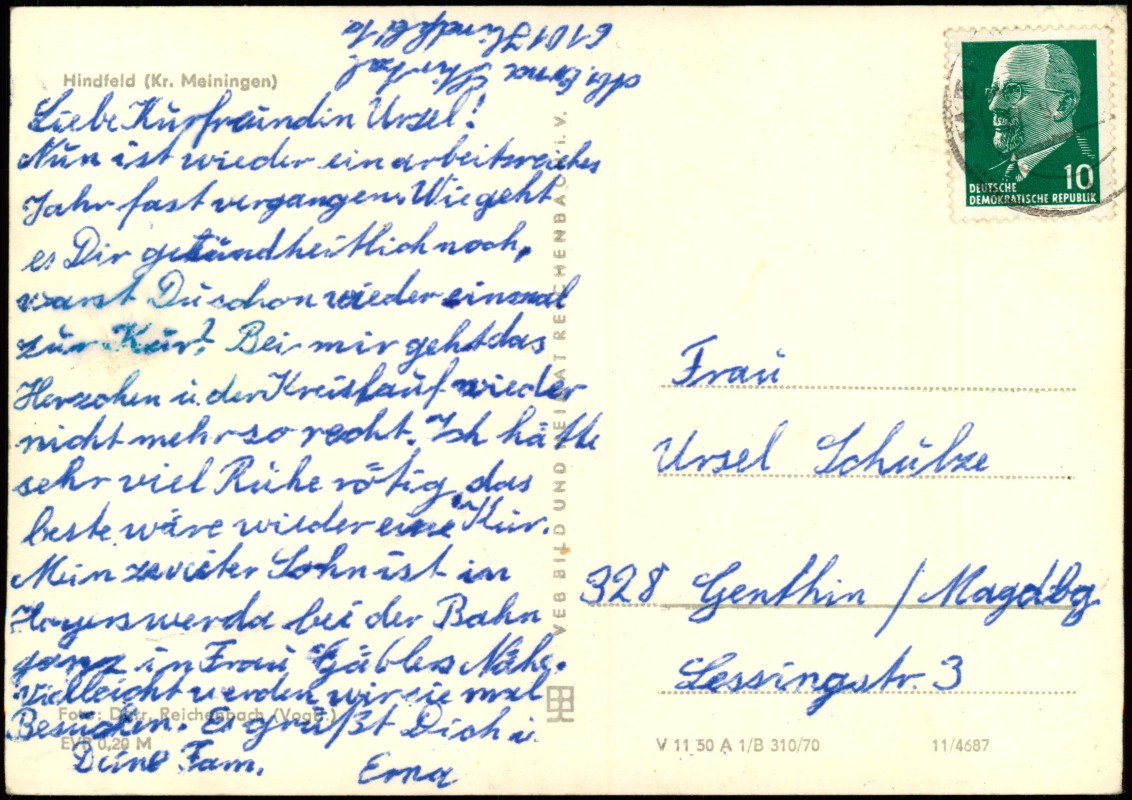 Hindfeld (Kr. Meiningen)
Liebe Kurfreundin Ursel!
Nun ist wieder ein arbeitsreiches
Jahr fast vergangen. Wie geht
es Dir gesundheitlich noch,
warst Du schon wieder einmal
zur Kur? Bei mir geht das
Herzchen u. der Kreislauf wieder
nicht mehr so recht. Ich hätte
sehr viel Ruhe nötig, das
beste wäre wieder eine Kur.
Mein zweiter Sohn ist in
Hoyerswerda bei der Bahn
ganz in Frau Gäblers Nähe.
Vielleicht werden wir sie mal
Besuchen. Es grüßt Dich u.
Deine Fam. Erna
Foto: Dörr, Reichenbach (Vogtl.)
EVP 0,20 M
Abs. Erna
6101 Hindfeld
VEB BILD UND HEIMAT REICHENBACH I. V.
10
DEUTSCHE
DEMOKRATISCHE REPUBLIK
Frau
Ursel Schulze
328 Genthin / Magdbg.
Lessingstr. 3
V 11 50 A 1/B 310/70 11/4687